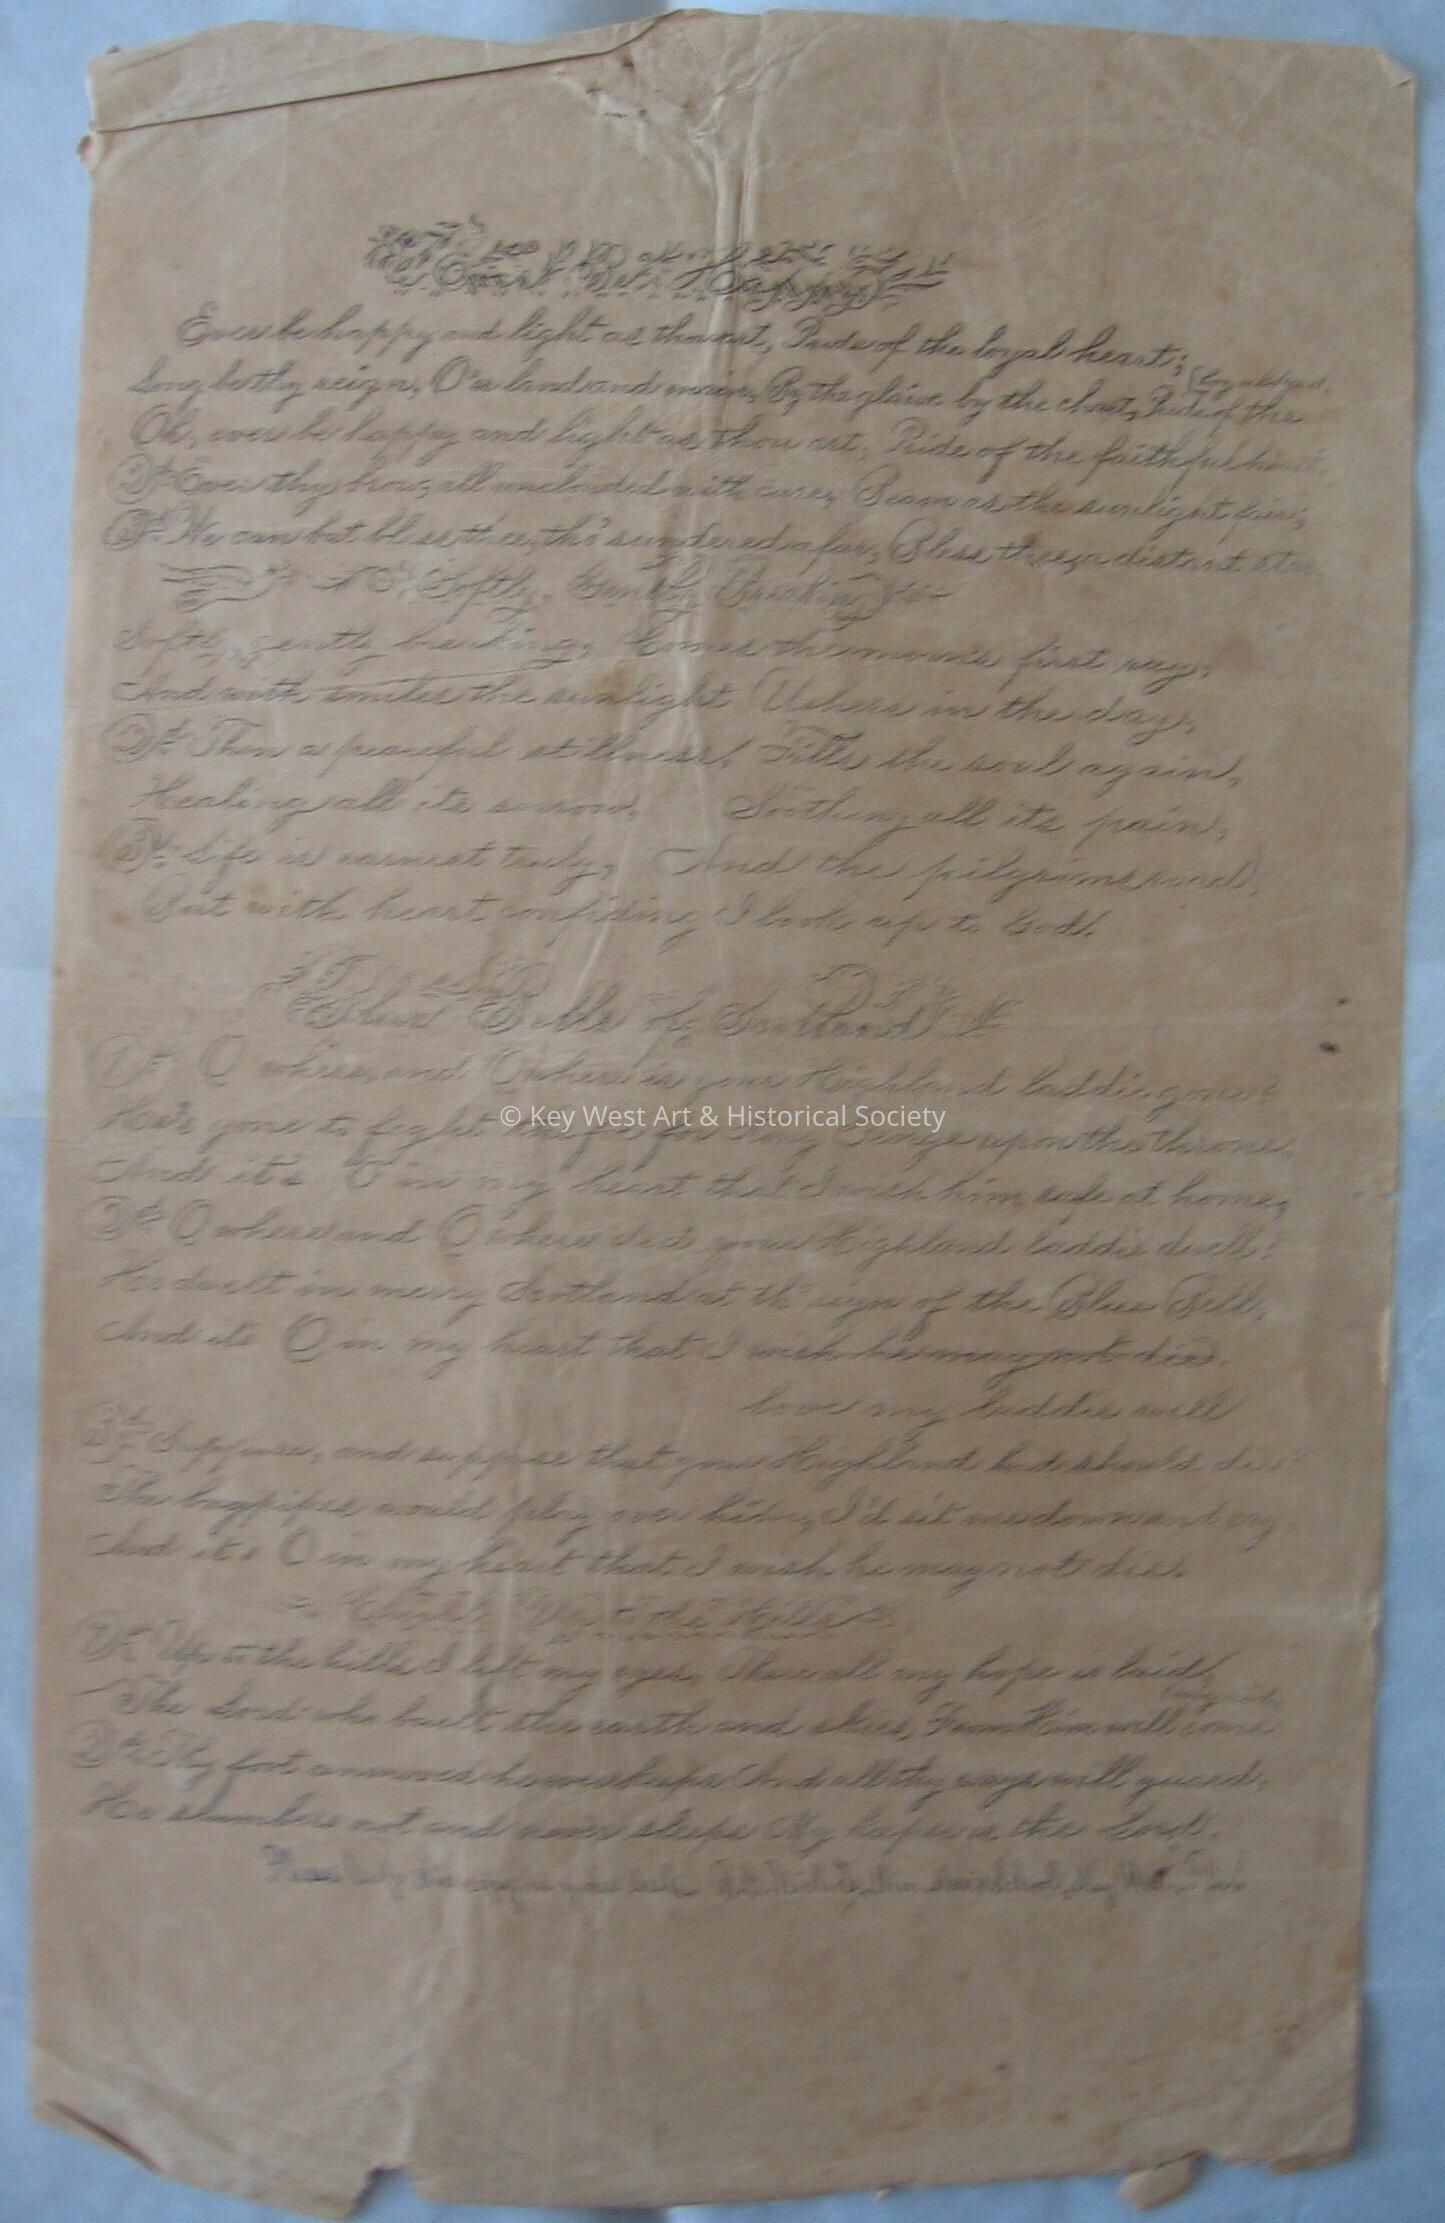 Ever Be Happy
Ever be happy and light as thou art, Pride of the loyal heart;
Long be thy reign, O'er land and main, By the glaive by the chart, Pride of the
Oh, ever be happy and light as thou art, Pride of the faithful heart.
2d Ever thy brow, all unclouded with care, Beam as the sunlight fair,
3d We can but bless thee, tho' sundered afar, Bless thee, a distant star,
Softly, Gently Breaking
Softly, gently breaking, Comes the morn's first ray,
And with smiles the sunlight Ushers in the day,
2d Then a peaceful stillness, Fills the soul again,
Healing all its sorrow, Soothing all its pain,
3d Life is earnest truly, And the pilgrims
But with heart confiding I look up to God.
Blue Bells of Scotland
1st O where, and O where is your Highland laddie gone?
He's gone to fight the foe, for King George upon the throne,
And it's O in my heart that I wish him safe at home,
2d O where and O where did your Highland laddie dwell?
He dwelt in merry Scotland at th' sign of the Blue Bell,
And its O in my heart that I wish he may not die.
love my laddie well
3d Suppose, and suppose that your Highland lad should die
The bagpipes would play over him, I'd sit me down and cry
And it's O in my heart that I wish he may not die.
Up to the Hills
1st Up to the hills I lift my eyes, There all my hope is laid,
my aid,
The Lord who built the earth and skies, From Him will come
2d Thy foot unmoved he ever keeps And all thy ways will guard,
He slumbers not and never sleeps My keeper is the Lord.
© Key West Art & Historical Society